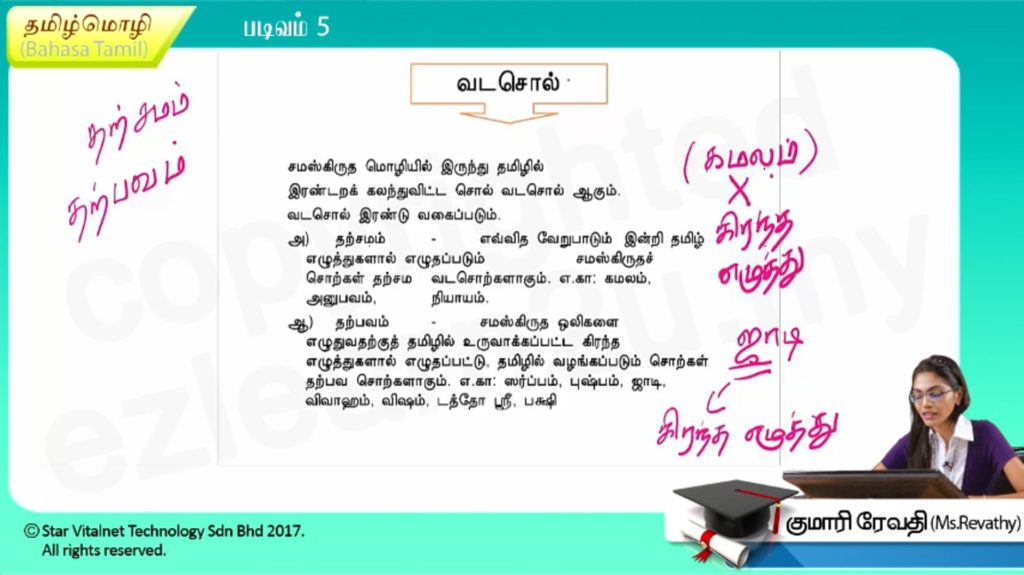 தமிழ்மொழி
(Bahasa Tamil)
படிவம் 5
வடசொல்
தற்சமம்
தற்பவம்
சமஸ்கிருத மொழியில் இருந்து தமிழில்
இரண்டறக் கலந்துவிட்ட சொல் வடசொல் ஆகும்.
வடசொல் இரண்டு வகைப்படும்.
அ) தற்சமம் - எவ்வித வேறுபாடும் இன்றி தமிழ்
எழுத்துகளால் எழுதப்படும் சமஸ்கிருதச்
சொற்கள் தற்சம வடசொற்களாகும். எ.கா: கமலம்,
அனுபவம், நியாயம்.
ஆ) தற்பவம் - சமஸ்கிருத ஒலிகளை
எழுதுவதற்குத் தமிழில் உருவாக்கப்பட்ட கிரந்த
எழுத்துகளால் எழுதப்பட்டு, தமிழில் வழங்கப்படும் சொற்கள்
தற்பவ சொற்களாகும். எ.கா: ஸர்ப்பம், புஷ்பம், ஜாடி,
விவாஹம், விஷம், டத்தோ ஸ்ரீ, பக்ஷி
(கமலம்)
X
கிரந்த
எழுத்து
ஜாடி
கிரந்த எழுத்து
copyrighted
© Star Vitalnet Technology Sdn Bhd 2017.
All rights reserved.
குமாரி ரேவதி (Ms.Revathy)